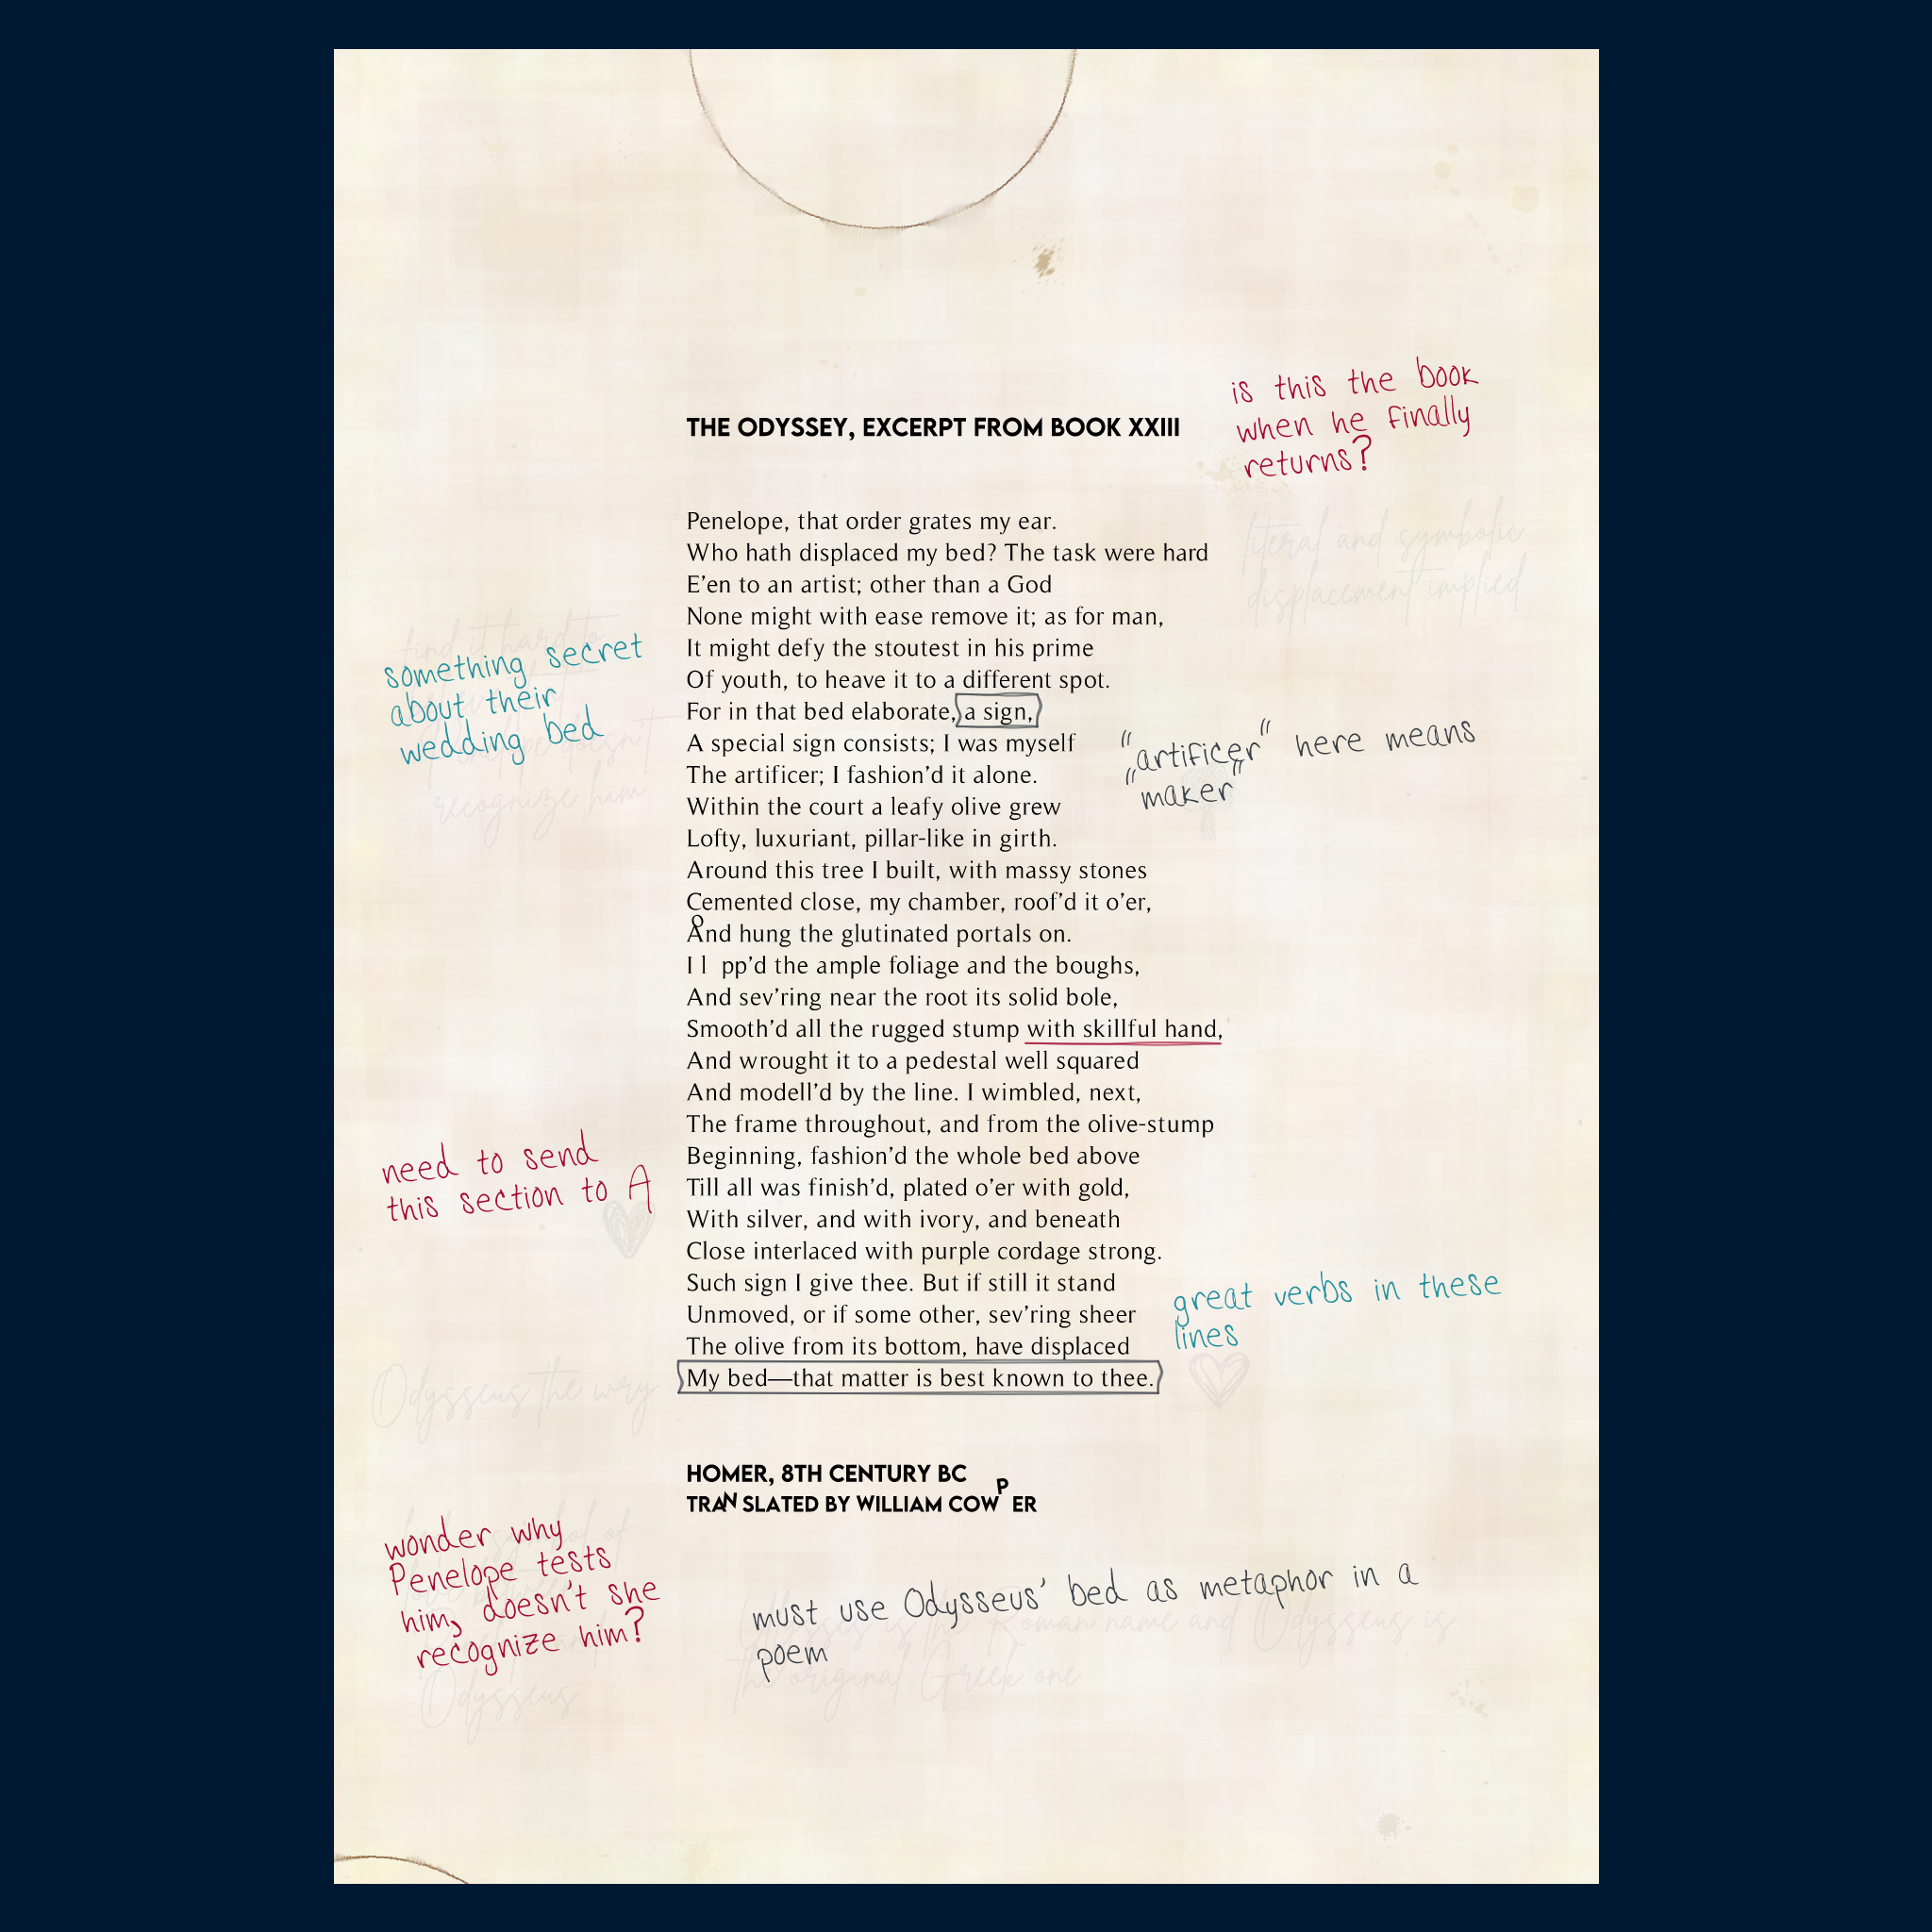 is this the book
when he finally
returns?
THE ODYSSEY, EXCERPT FROM BOOK XXIII
literal and symbolic
displacement implied
Penelope, that order grates my ear.
Who hath displaced my bed? The task were hard
E’en to an artist; other than a God
None might with ease remove it; as for man,
It might defy the stoutest in his prime
Of youth, to heave it to a different spot.
For in that bed elaborate, a sign,
A special sign consists; I was myself
The artificer; I fashion’d it alone.
Within the court a leafy olive grew
Lofty, luxuriant, pillar-like in girth.
Around this tree I built, with massy stones
Cemented close, my chamber, roof’d it o’er,
And hung the glutinated portals on.
I lopp’d the ample foliage and the boughs,
And sev’ring near the root its solid bole,
Smooth’d all the rugged stump with skillful hand,
And wrought it to a pedestal well squared
And modell’d by the line. I wimbled, next,
The frame throughout, and from the olive-stump
Beginning, fashion’d the whole bed above
Till all was finish’d, plated o’er with gold,
With silver, and with ivory, and beneath
Close interlaced with purple cordage strong.
Such sign I give thee. But if still it stand
Unmoved, or if some other, sev’ring sheer
The olive from its bottom, have displaced
My bed—that matter is best known to thee.
find it hard to
doesn't
recognize him
something secret
about their
wedding bed
"artificer" here means
"maker"
need to send
this section to A
great verbs in these
lines
Odysseus the wry
HOMER, 8TH CENTURY BC
TRANSLATED BY WILLIAM COWPER
wonder why
Penelope tests
him, doesn't she
recognize him?
of
Odysseus
must use Odysseus' bed as metaphor in a
poem
Ulysses is the Roman name and Odysseus is
the original Greek one